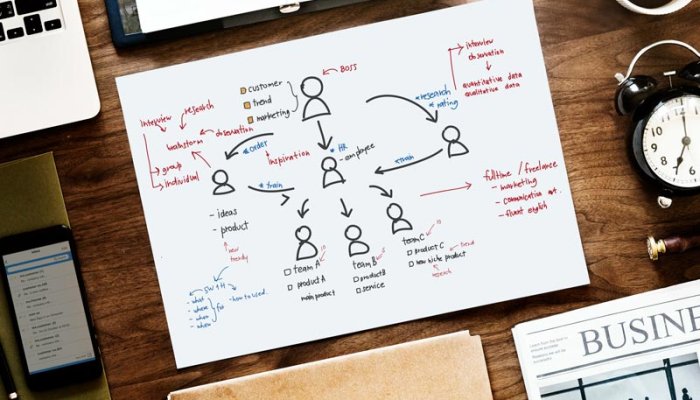 BOSS
customer
trend
marketing
interview
observation
quantitative data
qualitative data
* research
* rating
interview
research
brainstorm
observation
group
individual
* order
inspiration
* HR
- employee
* train
* train
- ideas
- product
new
trendy
fulltime / freelance
- marketing
- fluent english
team A
product A
main product
team B
product B
service
team C
product C
trend
new niche product
research
5W1H
- what
- where
- when
for
- how to used.
BUSINE